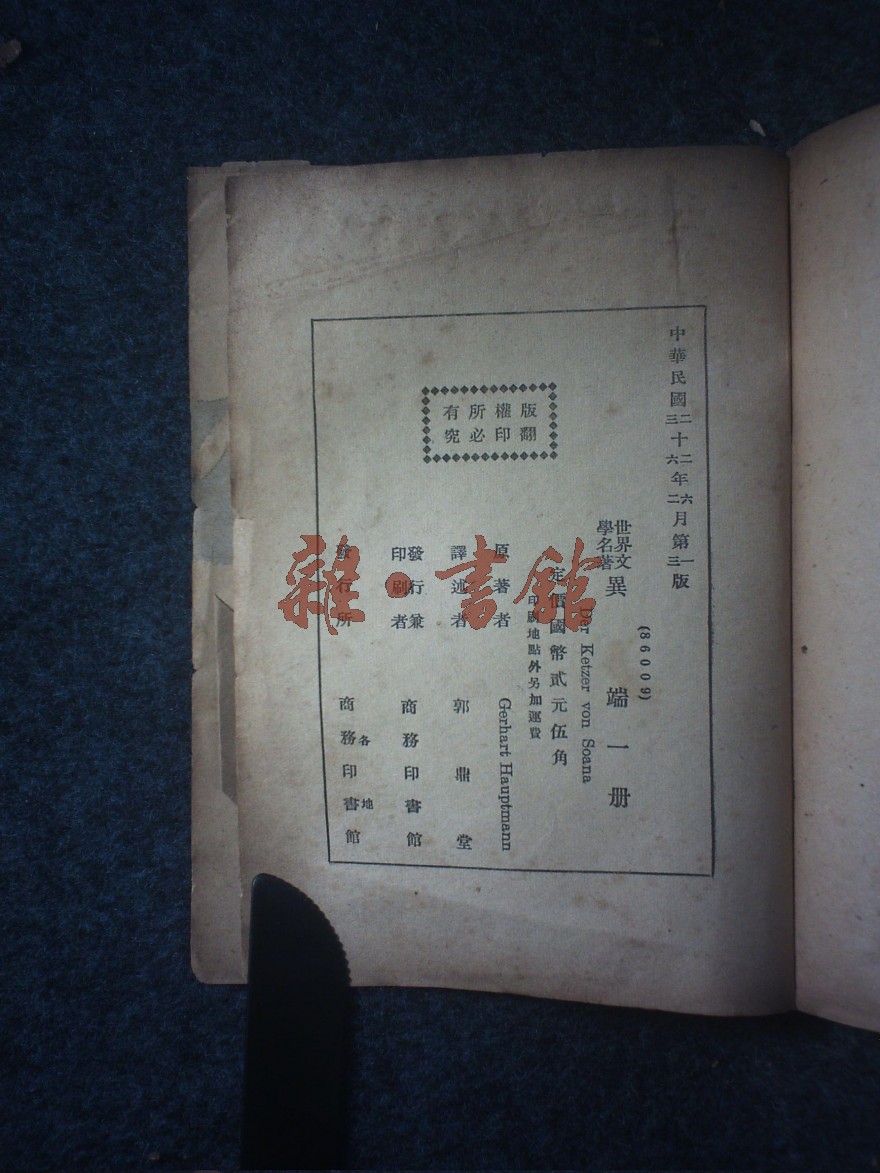 中華民國二十二年六月第一版
三 六 二 三
(86009)
世界文學名著 異端一冊
Der Ketzer von Soana
定價國幣貳元伍角
印刷地點外另加運費
原著者 Gerhart Hauptmann
譯述者 郭鼎堂
發行兼印刷者 商務印書館
發行所 各地商務印書館
版權所有
翻印必究
雜·書館